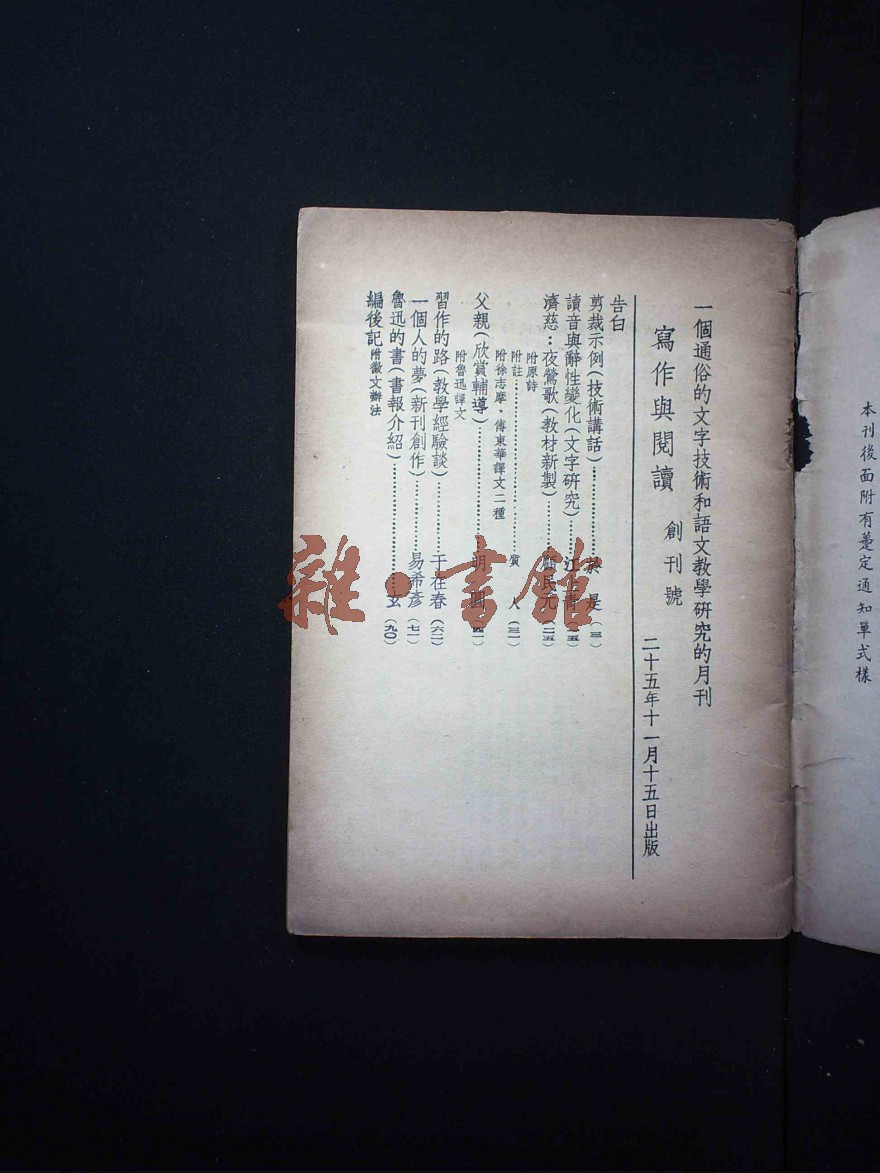 本刊後面附有蔓定通知單式樣
一個通俗的文字技術和語文教學研究的月刊
寫作與閱讀 創刊號
二十五年十一月十五日出版
告白
剪裁示例(技術講話)…………是(三)
讀音與辭性變化(文字研究)……江(五)
濟慈:夜鶯歌(教材新製)……顧民元(二五)
附原詩
附註……………………質人(三一)
附徐志摩、傅東華譯文二種
父親(欣賞輔導)……………明圓(四一)
附魯迅譯文
習作的路(教學經驗談)………于在春(六二)
一個人的夢(新刊創作)………易希彥(七一)
魯迅的書(書報介紹)……………玄(九〇)
編後記附徵文辦法
雜·書館